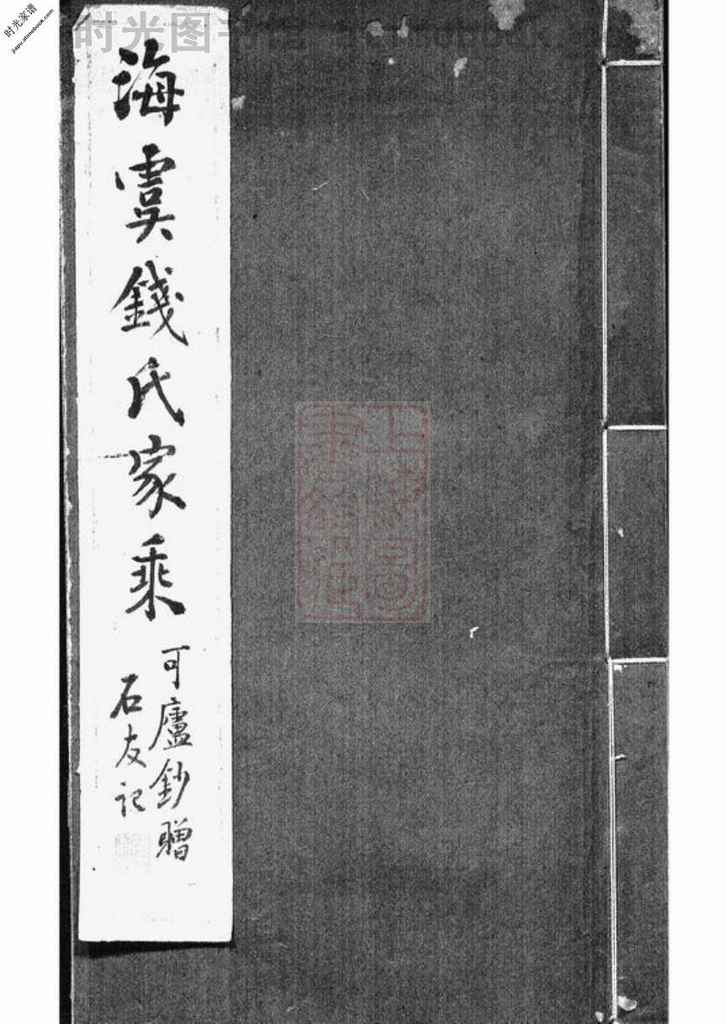 海虞錢氏家乘
可廬鈔贈
石友記
时光家谱
jiapu.shimebook.com
时光图书馆